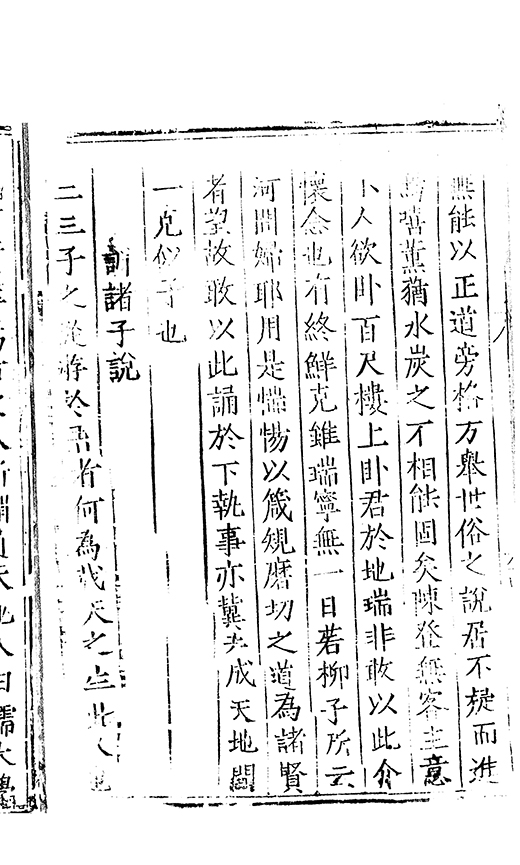 無能以正道旁格方舉世俗之說居不挺而進
蕕薰猶水炭之不相能固矣陳登無客主意
小人欲臥百尺樓上臥君於地瑞非敢以此介
懷念也有終鮮克雖瑞寧無一日若柳子所云
河間婦耶用是惴惕以箴規磨切之道為諸賢
者望故敢以此誦於下執事亦冀大成天地間
一克似子也
訓諸子說
二三子之從游於吾者何為哉天之生此人也